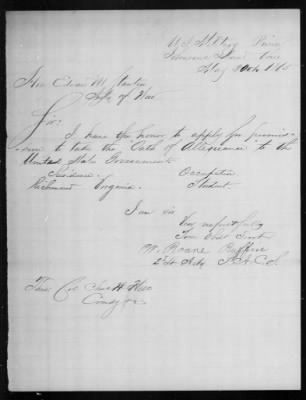 U.S. Military Prison
Johnsons Isla
May 30th 1865
Hon Edwin M Stanton
Secty of War
Sir:
I have the honor to apply for permis-
sion to take the Oath of Allegiance to the
United States Government
Residence. Occupation
Richmond Virginia. Student.
I am sir
Very respectfully
Your Obdt Servt
W. Roane Ruffin
2d Lt Arty P.A.C.S.
Thro' Col Chas W Hill
Comdg